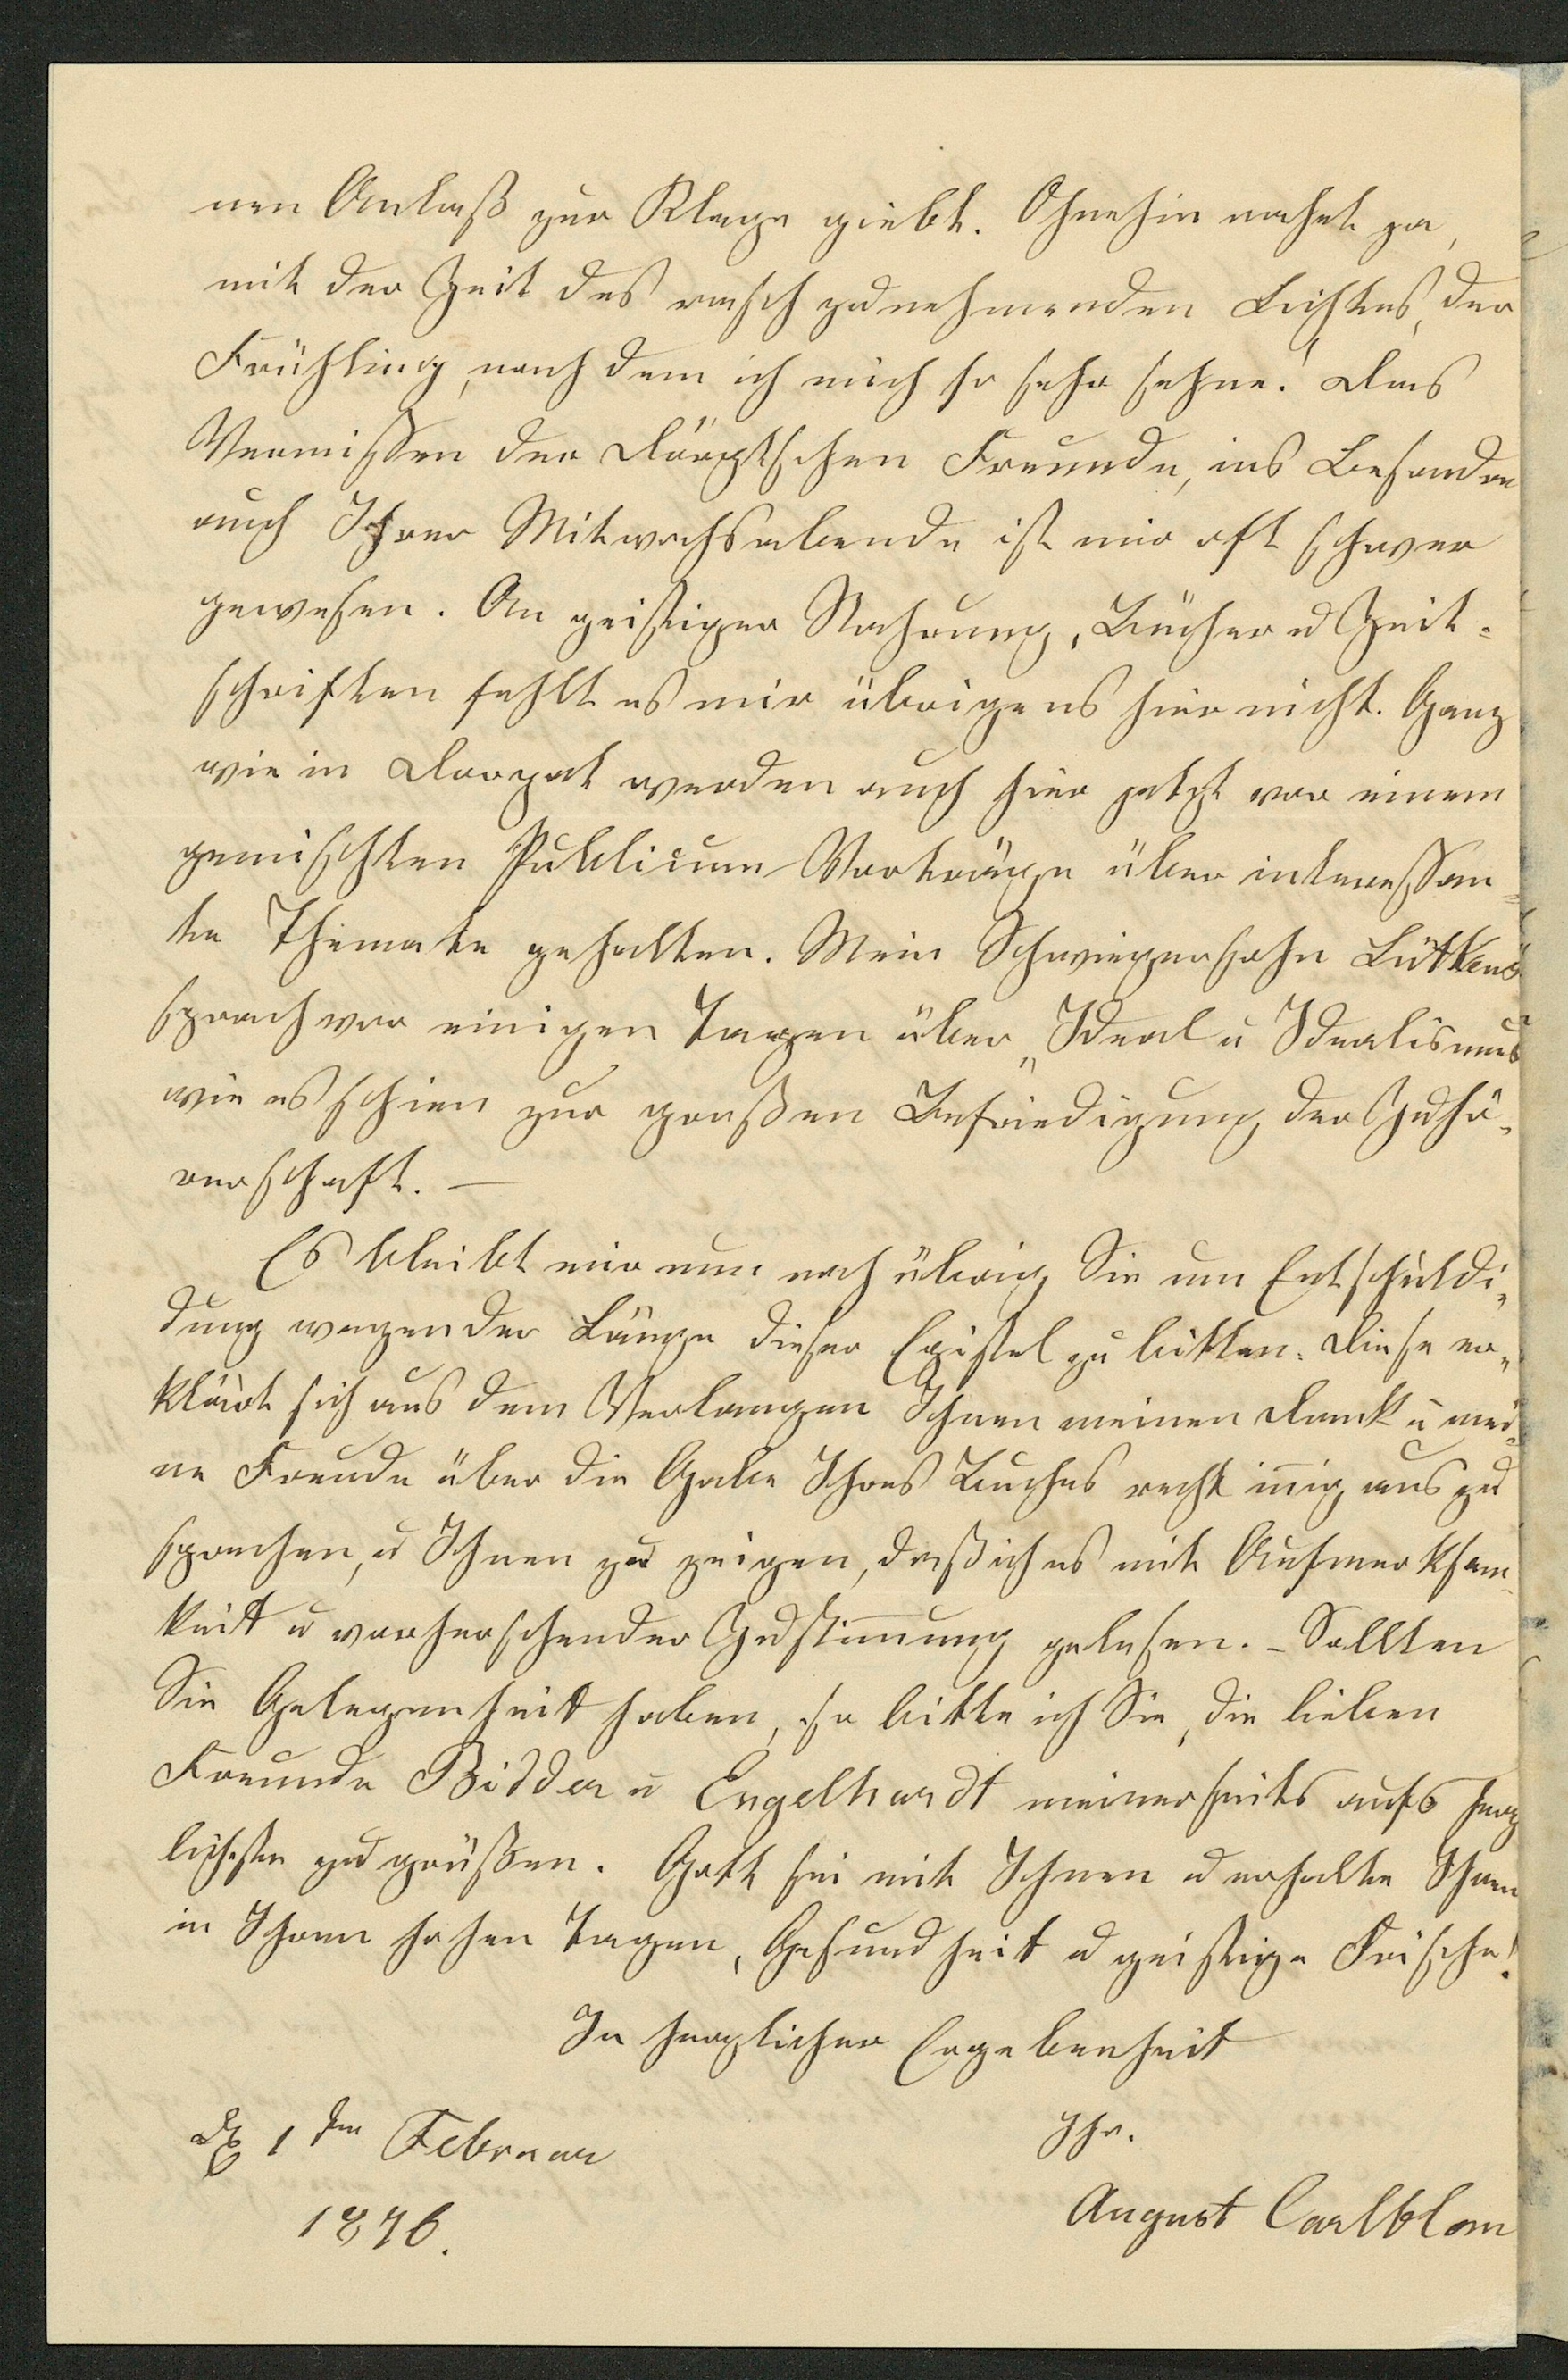 nen Anlaß zur Klage giebt. Ohnehin nahet ja,
mit der Zeit des rasch zunehmenden Lichtes, der
Frühling, nach dem ich mich so sehr sehne! Das
Vermissen der Dörptschen Freunde, ins Besondere
auch Ihrer Mitwochsabende ist mir oft schwer
gewesen. An geistiger Nahrung, Bücher u Zeit-
schriften fehlt es mir übrigens hier nicht. Ganz
wie in Dorpat werden auch hier jetzt vor einem
gemischten Publicum Vorträge über interessan-
te Themate gehalten. Mein Schwiegersohn Lütkens
sprach vor einigen Tagen über „Ideal u Idealismus"
wie es schien zur großen Befriedigung der Zuhö-
rerschaft. —
Es bleibt mir nun noch übrig Sie um Entschuldi-
dung wegen der Länge dieser Epistel zu bitten. Diese er-
klärt sich aus dem Verlangen Ihnen meinen Dank u mei-
ne Freude über die Gabe Ihres Buches recht iñig aus zu
sprechen, u Ihnen zu zeigen, daß ich es mit Aufmerksam-
keit u vorherschender Zustim̃ung gelesen. – Sollten
Sie Gelegenheit haben, so bitte ich Sie, die lieben
Freunde Bidder u Engelhardt meinerseits aufs herz
lichste zu grüßen. Gott sei mit Ihnen u erhalte Ihnen
in Ihren hohen Tagen, Gesundheit u geistige Frische!
In herzlicher Ergebenheit
Ihr.
1 ten Februar
1876.
August Carlblom